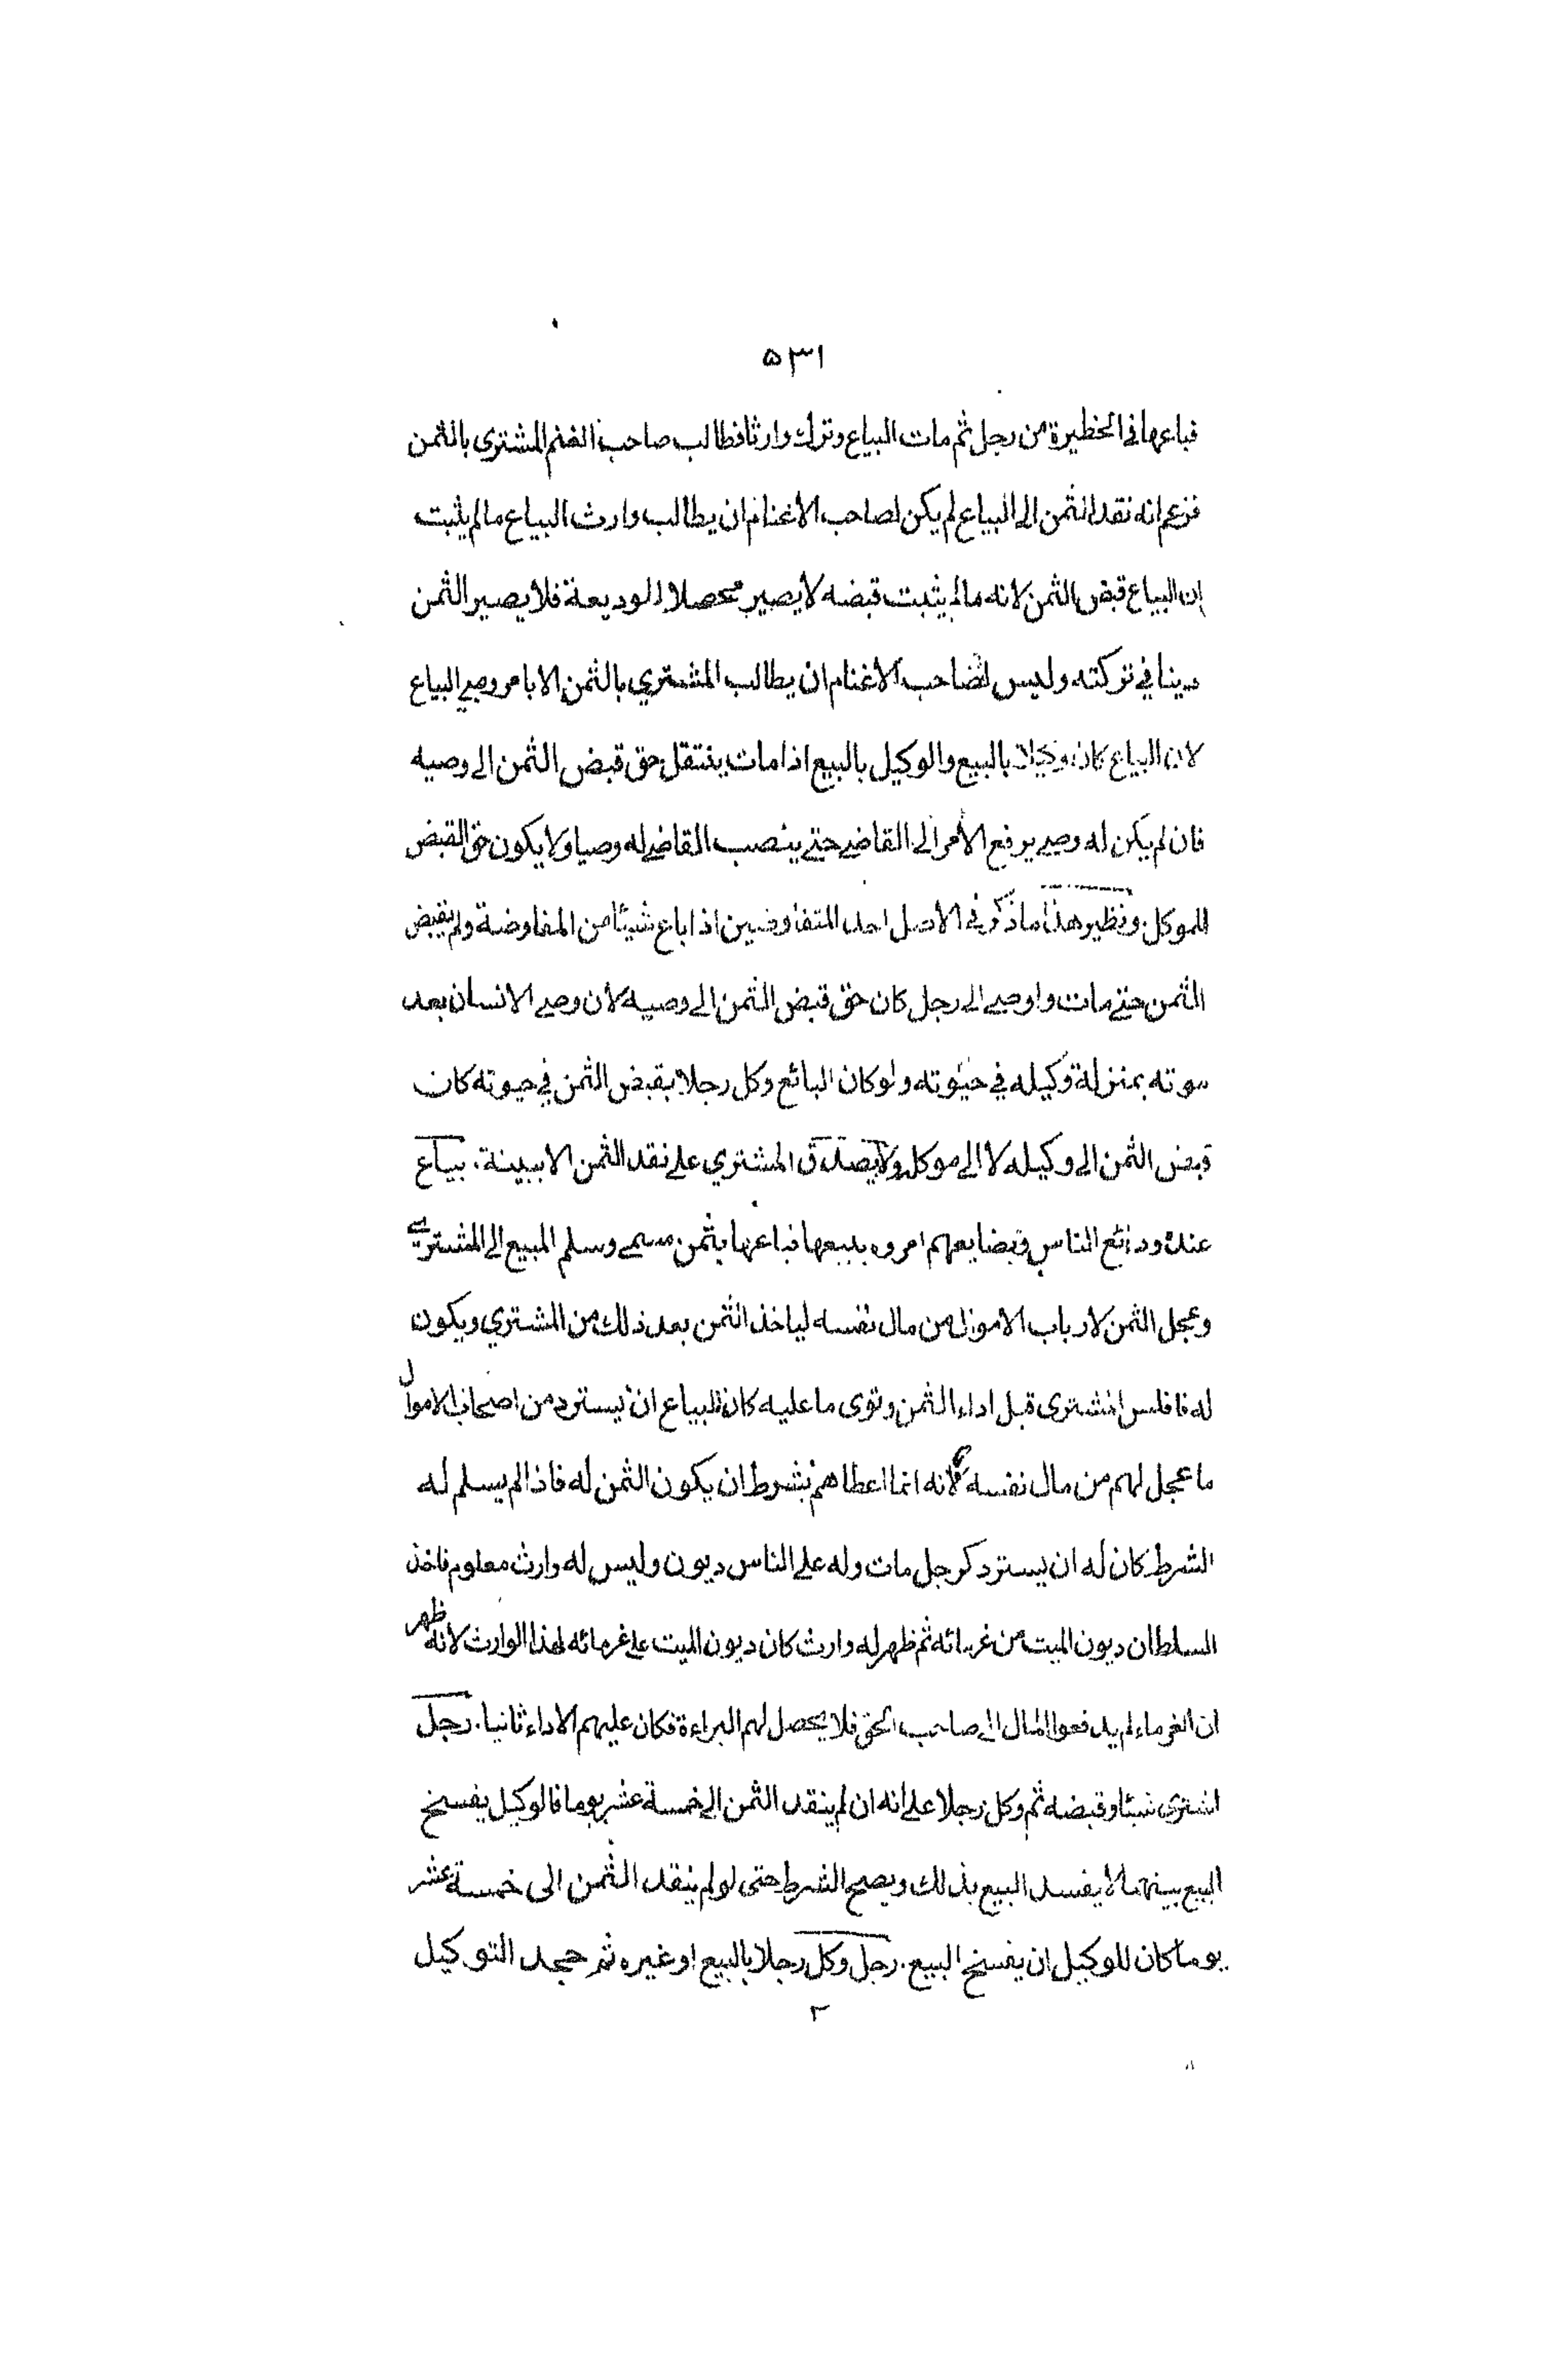 ۵۳۱
فباعها في الحظيرة من رجل ثم مات البياع وترك وارثا فطالب صاحب الغنم المشتري بالثمن
فزعم انه نقد الثمن الى البياع لم يكن لصاحب الاغنام ان يطالب وارث البياع ما لم يثبت
ان البياع قبض الثمن لانه ما لم يثبت قبضه لا يصير محصلا للوديعة فلا يصير الثمن
دينا في تركته وليس لصاحب الاغنام ان يطالب المشتري بالثمن الا بامر وصي البياع
لان البياع كان وكيلا بالبيع والوكيل بالبيع اذا مات ينتقل حق قبض الثمن الى وصيه
فان لم يكن له وصي يرفع الامر الى القاضي حتى ينصب القاضي له وصيا ولا يكون حق القبض
للموكل ونظير هذا ما ذكر في الاصل احد المتفاوضين اذا باع شيئا من المفاوضة ولم يقبض
الثمن حتى مات واوصى الى رجل كان حق قبض الثمن الى وصيه لان وصي الانسان بعد
موته بمنزلة وكيله في حيوته ولو كان البائع وكل رجلا بقبض الثمن في حيوته كان
قبض الثمن الى وكيله لا الى موكله ولا يصدق المشتري على نقد الثمن الا ببينة . بياع
عنده ودائع الناس وبضايعهم امروه ببيعها فباعها بثمن مسمى وسلم المبيع الى المشتري
وعجل الثمن لارباب الاموال من مال نفسه لياخذ الثمن بعد ذلك من المشتري ويكون
له فافلس المشتري قبل اداء الثمن وتوى ما عليه كان للبياع ان يسترد من اصحاب الاموال
ما عجل لهم من مال نفسه لانه انما اعطاهم بشرط ان يكون الثمن له فاذا لم يسلم له
الشرط كان له ان يسترد كرجل مات وله على الناس ديون وليس له وارث معلوم فاخذ
السلطان ديون الميت من غرمائه ثم ظهر له وارث كان ديون الميت على غرمائه لهذا الوارث لانه ظهر
ان الغرماء لم يدفعوا المال الى صاحب الحق فلا يحصل لهم البراءة فكان عليهم الاداء ثانيا . رجل
اشترى شيئا وقبضه ثم وكل رجلا على انه ان لم ينقد الثمن الى خمسة عشر يوما فالوكيل يفسخ
البيع بينهما لا يفسد البيع بذلك ويصح الشرط حتى لو لم ينقد الثمن الى خمسة عشر
يوما كان للوكيل ان يفسخ البيع . رجل وكل رجلا بالبيع او غيره ثم جحد التوكيل
٢